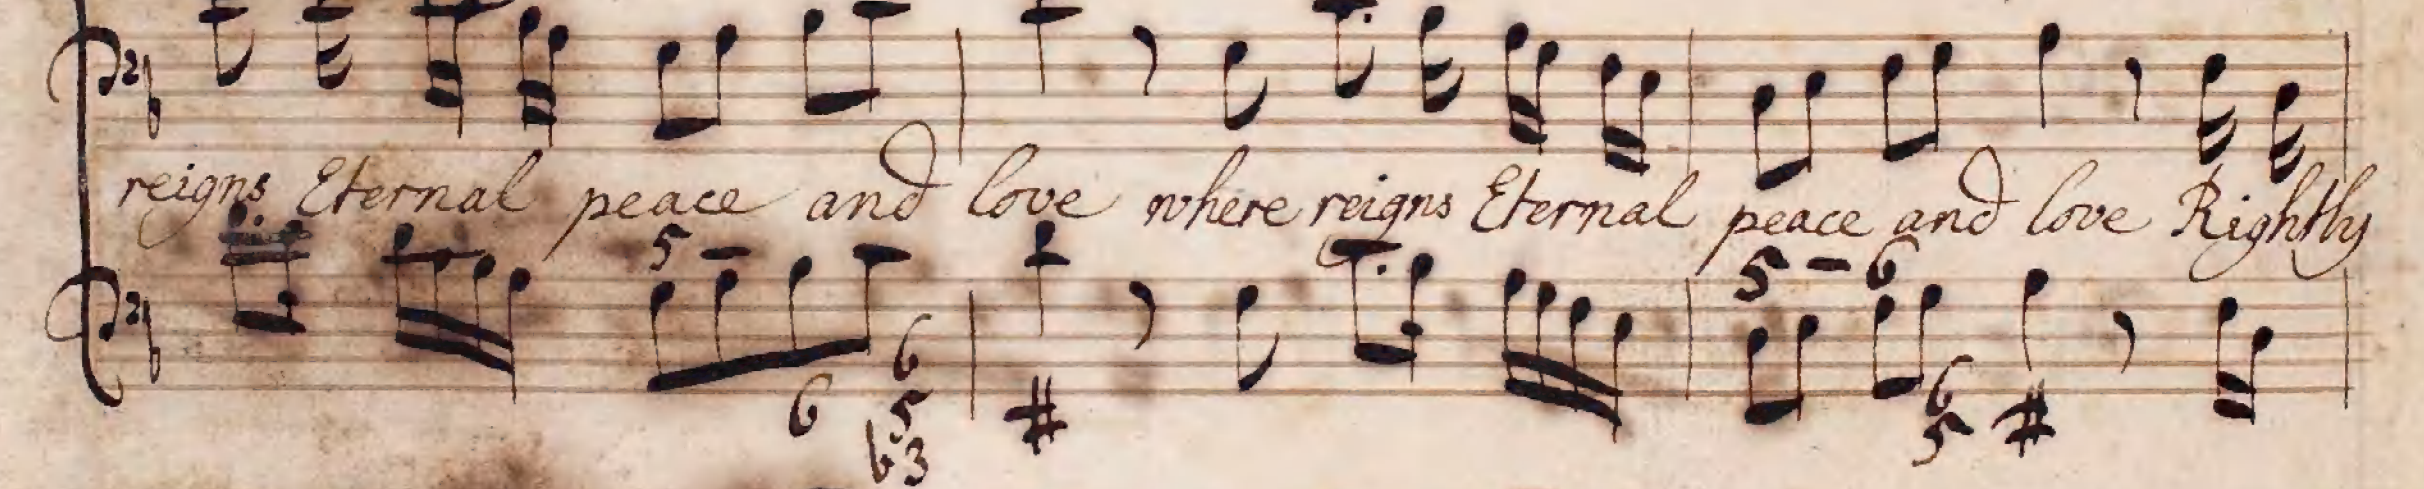 reigns Eternal peace and love where reigns Eternal peace and love Rightly
5 - 5 - 6
6 6 5 b3 # 6 5 #